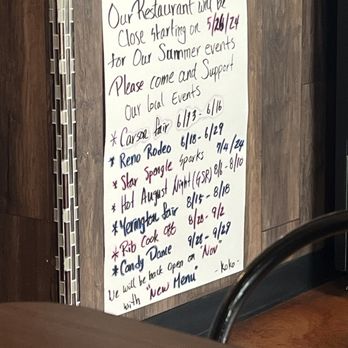 Our Restaurant will be
Close starting on 5/26/24
for Our Summer events
Please come and Support
Our local Events
* Carson fair 6/13 - 6/16
* Reno Rodeo 6/18 - 6/29
* Star Spangle Sparks 7/4/24
* Hot August Night (GSR) 8/6 - 8/10
* Yerington fair 8/15 - 8/18
* Rib Cook Off 8/28 - 9/2
* Candy Dance 9/21 - 9/28
We will be back open on "Nov"
with "New Menu"
- Koko -